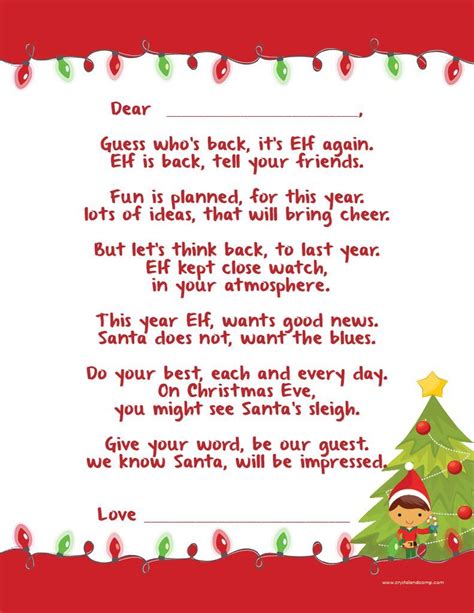 Dear ____________________,
Guess who's back, it's Elf again.
Elf is back, tell your friends.
Fun is planned, for this year.
lots of ideas, that will bring cheer.
But let's think back, to last year.
Elf kept close watch,
in your atmosphere.
This year Elf, wants good news.
Santa does not, want the blues.
Do your best, each and every day.
On Christmas Eve,
you might see Santa's sleigh.
Give your word, be our guest.
we know Santa, will be impressed.
Love ____________________
www.crystalandcomp.com